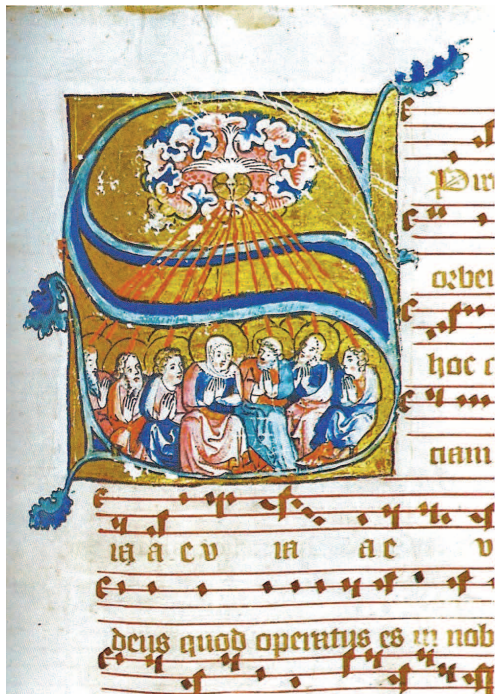 S Piri
orbe
hoc c
tiam
ia a e v ia a e v
deus quod operatus es in nob